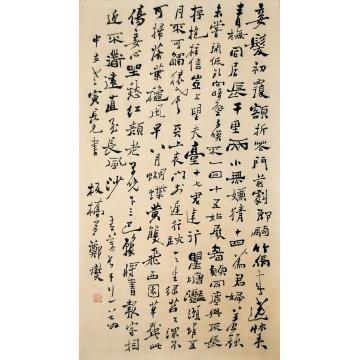 妾髮初覆額折花門前劇郎騎竹馬來遶牀弄
青梅同居長干里兩小無嫌猜十四為君婦羞顏
未嘗開低頭向暗壁千喚不一回十五始展眉願同塵與灰常
存抱柱信豈上望夫臺十六君遠行瞿塘灩澦堆五
月不可觸猿聲天上哀門前遲行跡一一生綠苔苔深不
可掃落葉秋風早八月蝴蝶黃雙飛西園草感此
傷妾心坐愁紅顏老早晚下三巴預將書報家相
迎不道遠直至長風沙
板橋鄭燮